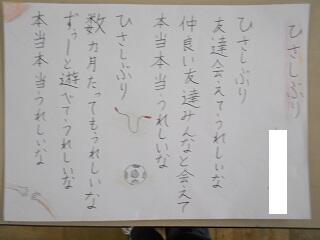 ひさしぶり
ひさしぶり
友達会えてうれしいな
仲良い友達みんなと会えて
本当本当うれしいな
ひさしぶり
数カ月たってもうれしいな
ずぅーと遊べてうれしいな
本当本当うれしいな